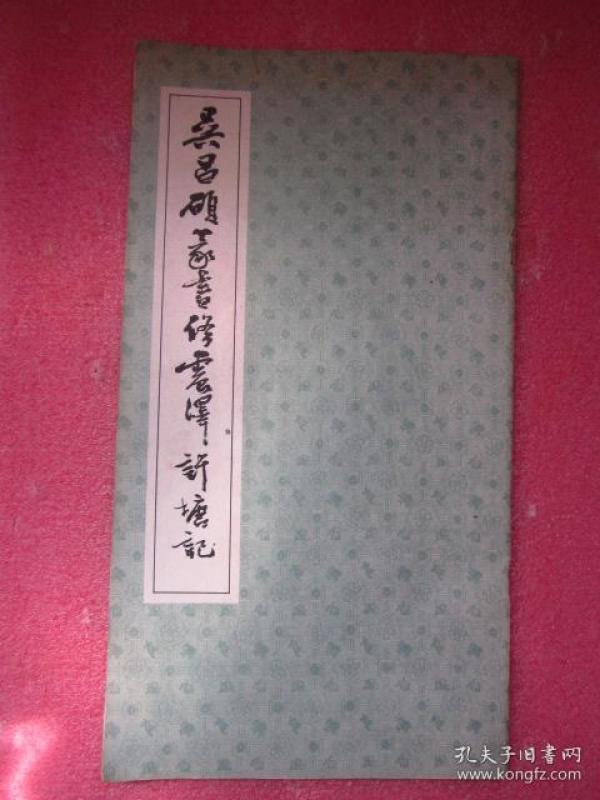 吴昌硕篆書修震澤許塘記
孔夫子旧書网
www.kongfz.com